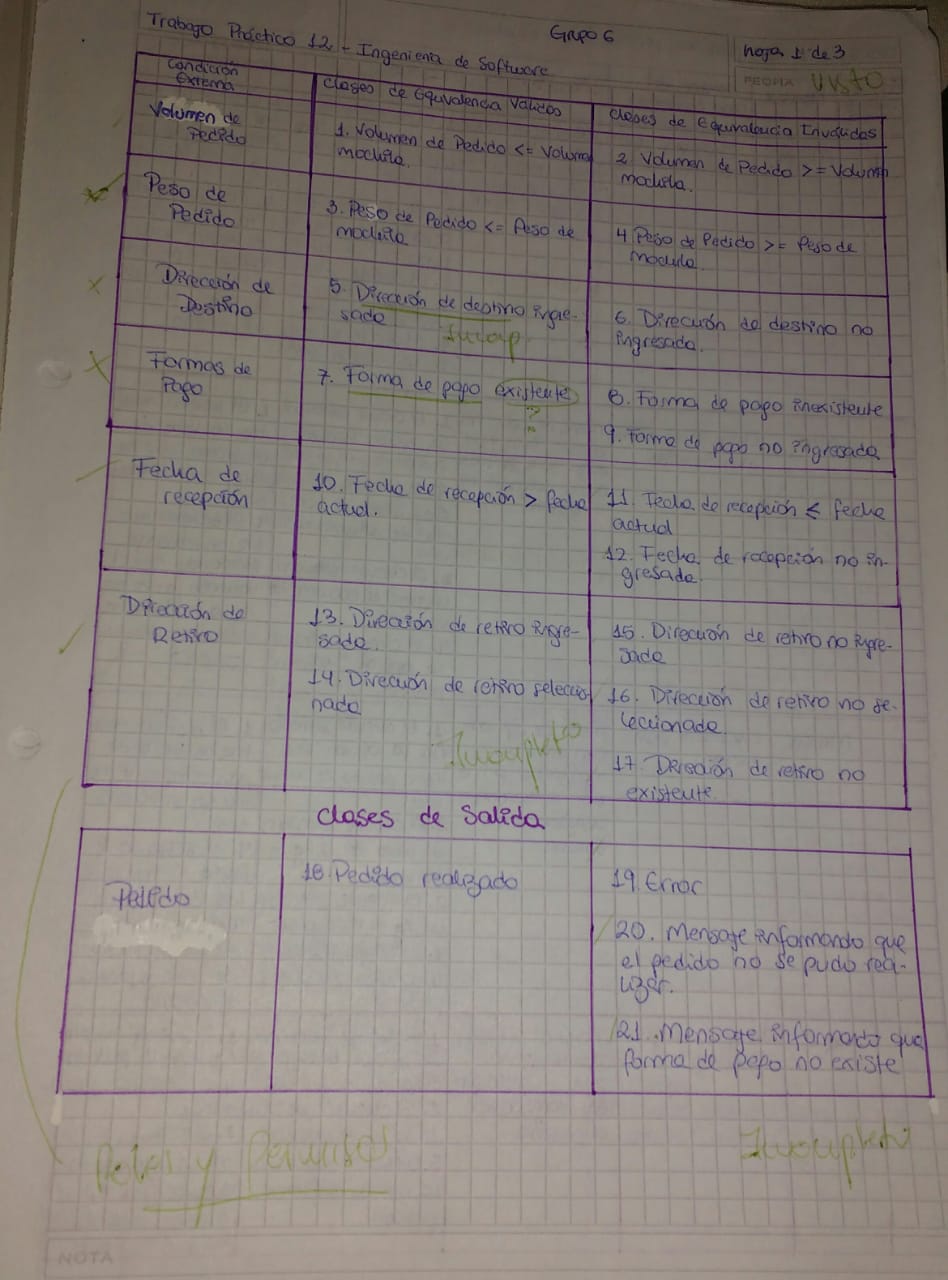 Trabajo Práctico 12 - Ingeniería de Software
Grupo 6
hoja 1 de 3
FECHA Visto
Condición
Externa
Clases de Equivalencia Válidas
Clases de Equivalencia Inválidas
Volumen de
Pedido
1. Volumen de Pedido <= Volumen
mochila.
2. Volumen de Pedido >= Volumen
mochila.
Peso de
Pedido
3. Peso de Pedido <= Peso de
mochila
4 Peso de Pedido >= Peso de
mochila.
Dirección de
Destino
5. Dirección de destino ingre-
sada
Incomp
6. Dirección de destino no
ingresada.
Formas de
Pago
7. Forma de pago existente
??
8. Forma de pago inexistente
9. Forma de pago no ingresada
Fecha de
recepción
10. Fecha de recepción > fecha
actual.
11. Fecha de recepción ≤ fecha
actual
12. Fecha de recepción no in-
gresada.
Dirección de
Retiro
13. Dirección de retiro ingre-
sada.
14. Dirección de retiro seleccio
nada
Incompleto
15. Dirección de retiro no ingre-
sada
16. Dirección de retiro no se-
leccionada.
17. Dirección de retiro no
existente.
Clases de Salida
Pedido
18. Pedido realizado
19. Error
20. Mensaje informando que
el pedido no se pudo rea-
lizar.
21. Mensaje informando que
forma de pago no existe
y Permisos
Incompleto
NOTA